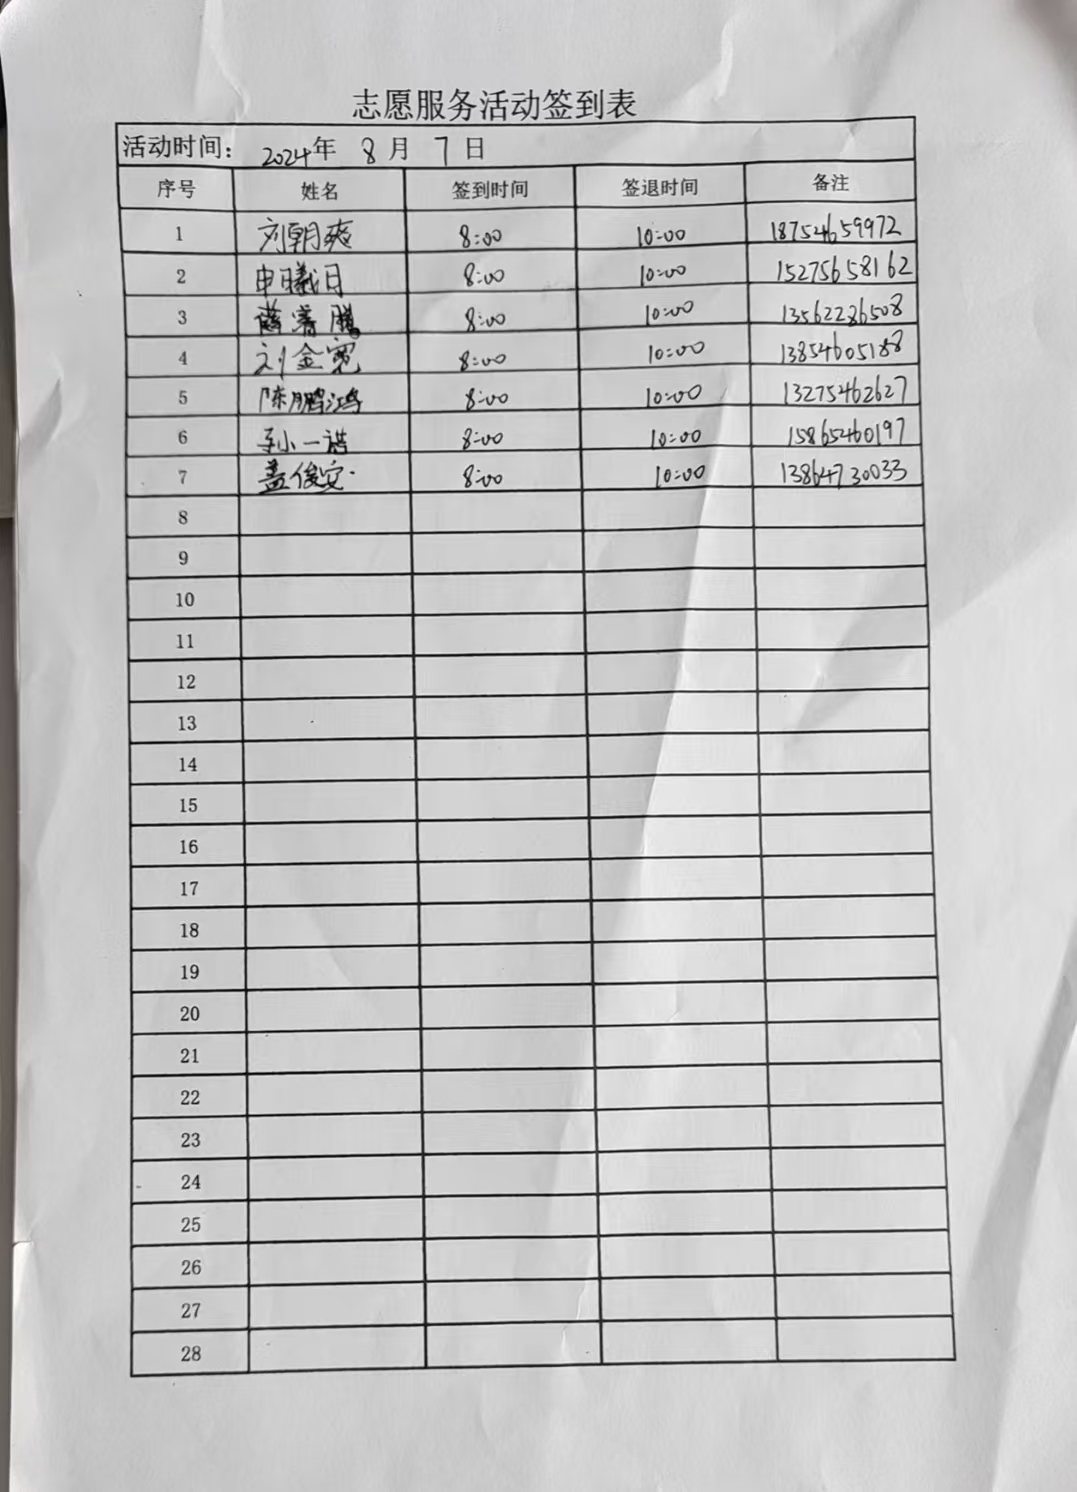 志愿服务活动签到表
活动时间： 2024年 8月 7日
序号 姓名 签到时间 签退时间 备注
1 刘朝爽 8:00 10:00 18754659972
2 申曦日 8:00 10:00 15275658162
3 薛 腾 8:00 10:00 13562286508
4 刘金宽 8:00 10:00 13854605188
5 陈鹏鸿 8:00 10:00 13275462627
6 孙一诺 8:00 10:00 15865460197
7 盖俊安 8:00 10:00 13864730033
8
9
10
11
12
13
14
15
16
17
18
19
20
21
22
23
24
25
26
27
28